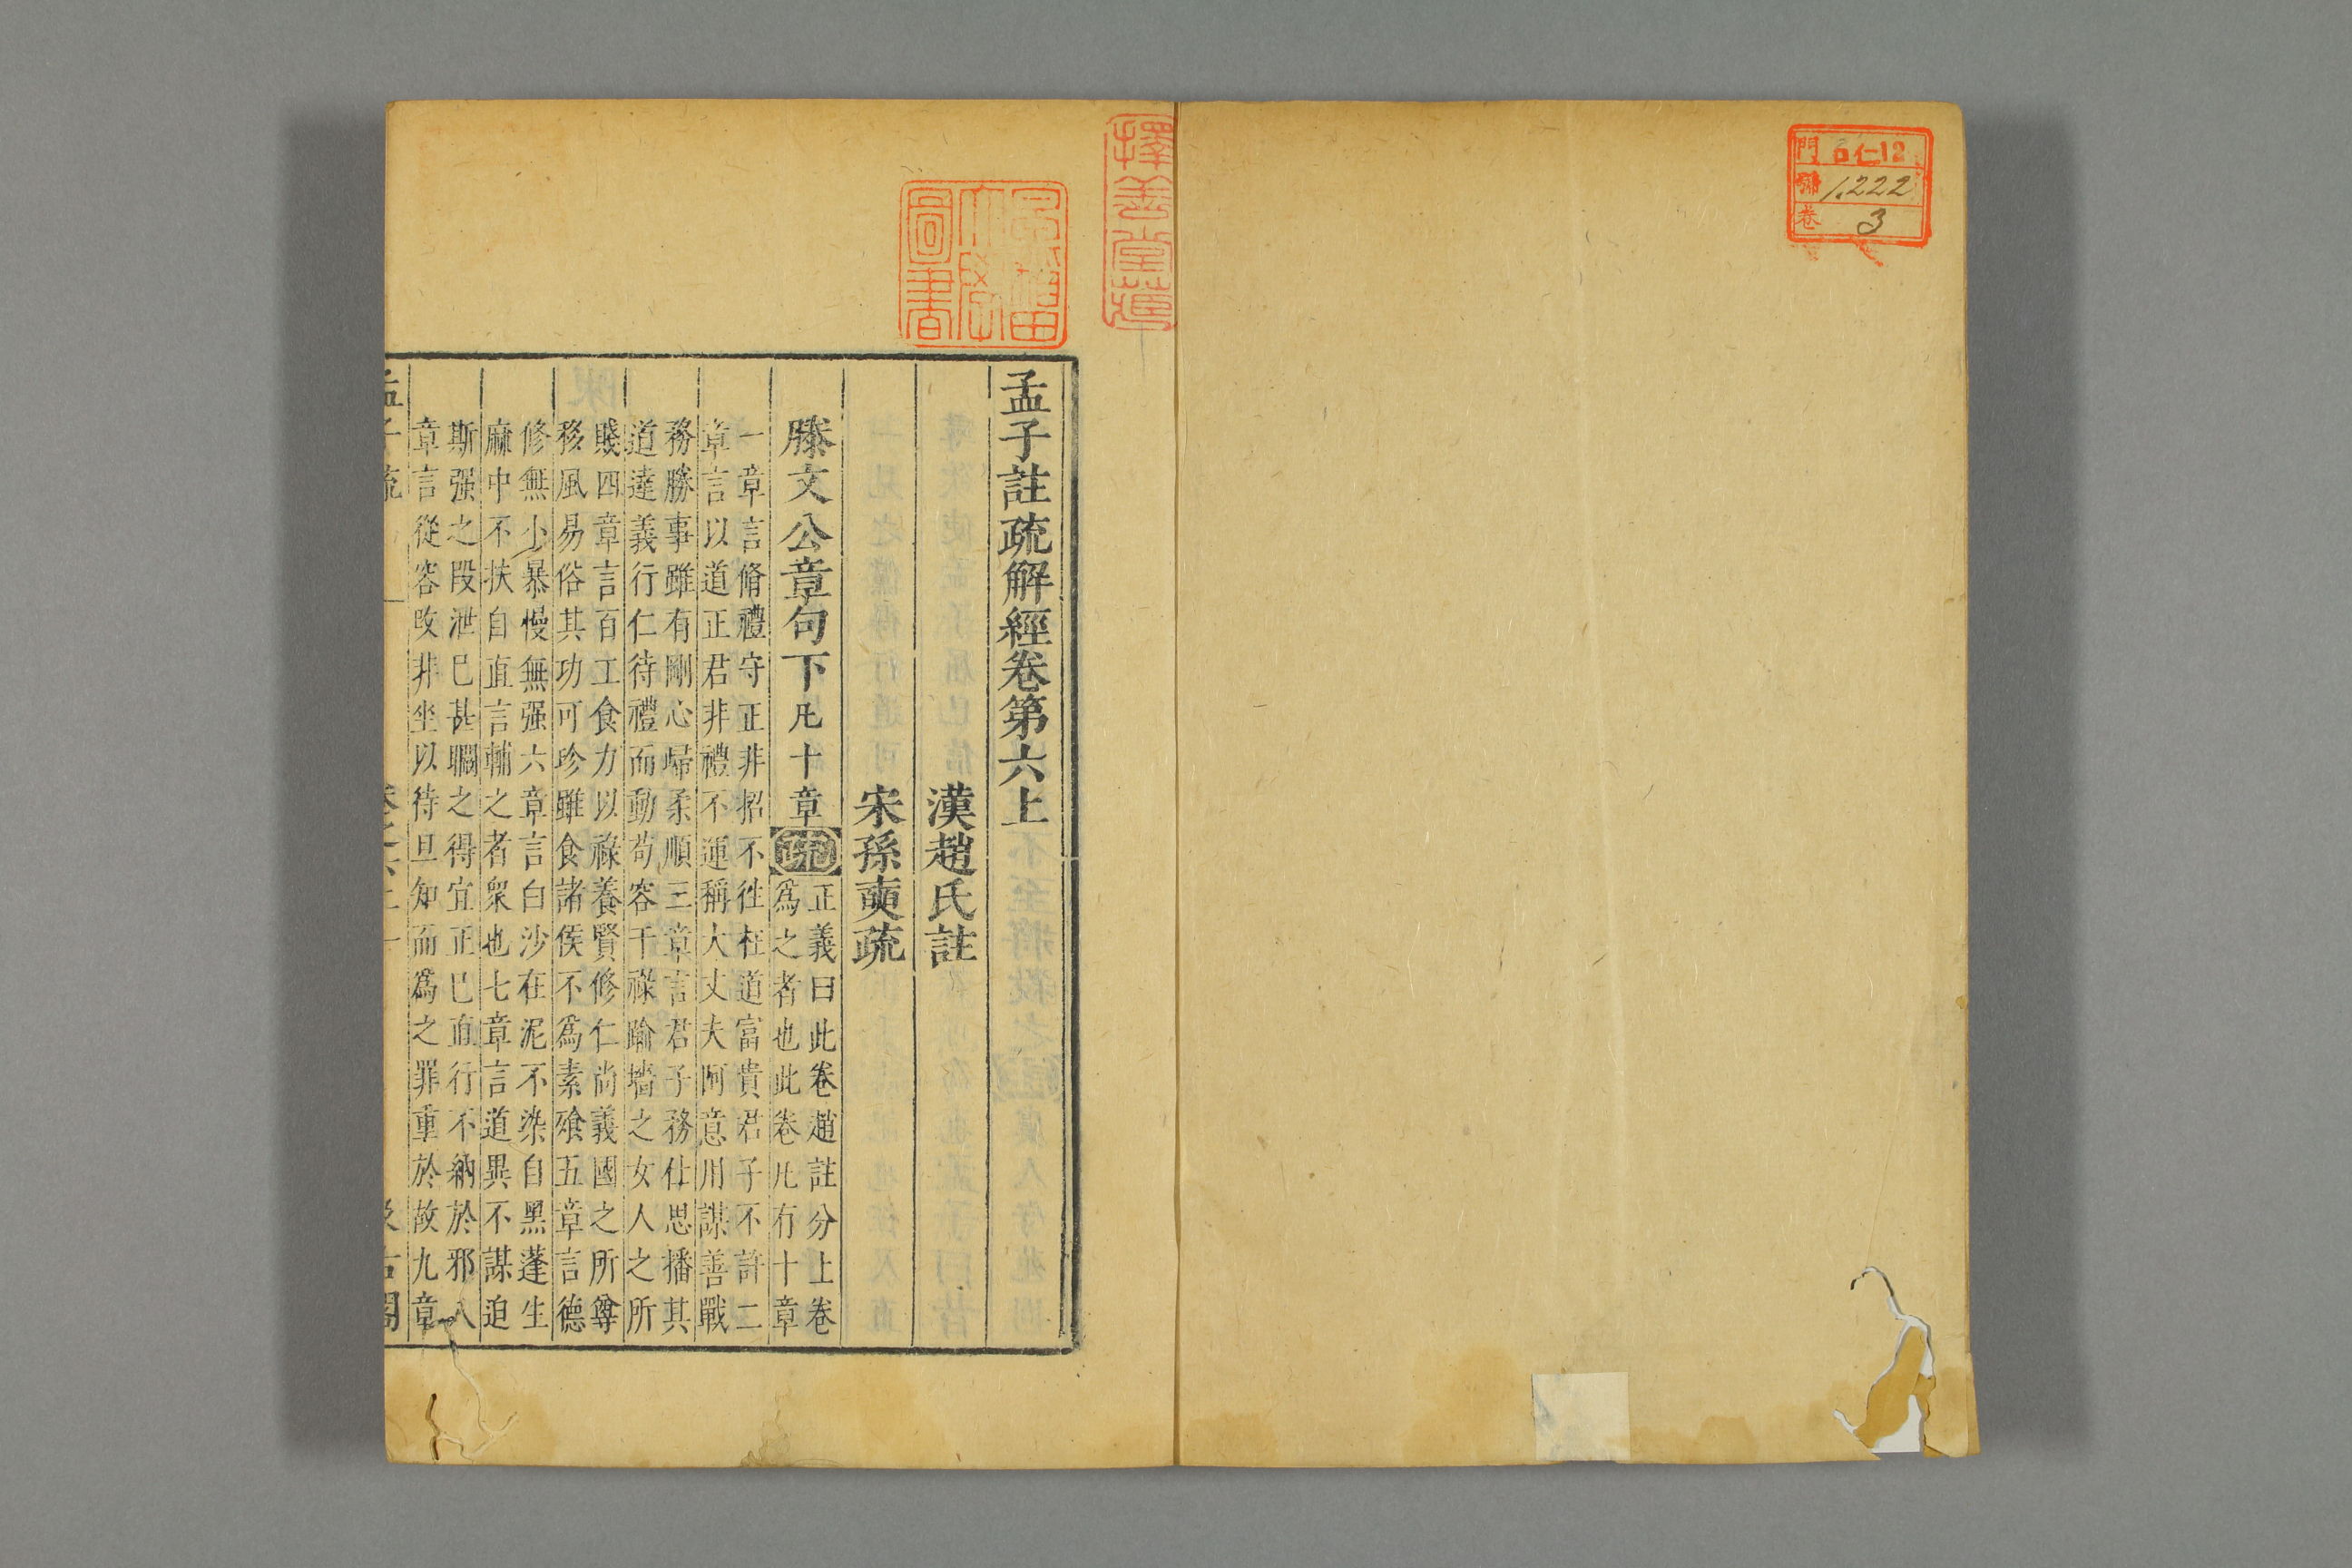 門 口仁12
號 1,222
卷 3
擇善堂蔵
早稲田
大學
圖書
孟子註疏解經卷第六上
漢趙氏註
宋孫奭疏
滕文公章句下凡十章疏正義曰此卷趙註分上卷
爲之者也此卷凡有十章
一章言脩禮守正非招不往枉道富貴君子不許二
章言以道正君非禮不運稱大丈夫阿意用謀善戰
務勝事雖有剛心歸柔順三章言君子務仕思播其
道達義行仁待禮而動苟容干祿踰墻之女人之所
賤四章言百工食力以祿養賢修仁尚義國之所尊
移風易俗其功可珍雖食諸侯不爲素飧五章言德
修無小暴慢無强六章言白沙在泥不染自黑蓬生
麻中不扶自直言輔之者衆也七章言道異不謀迫
斯强之段泄已甚矙之得宜正已直行不納於邪八
章言從容改非坐以待旦知而爲之罪重於故九章
孟子疏